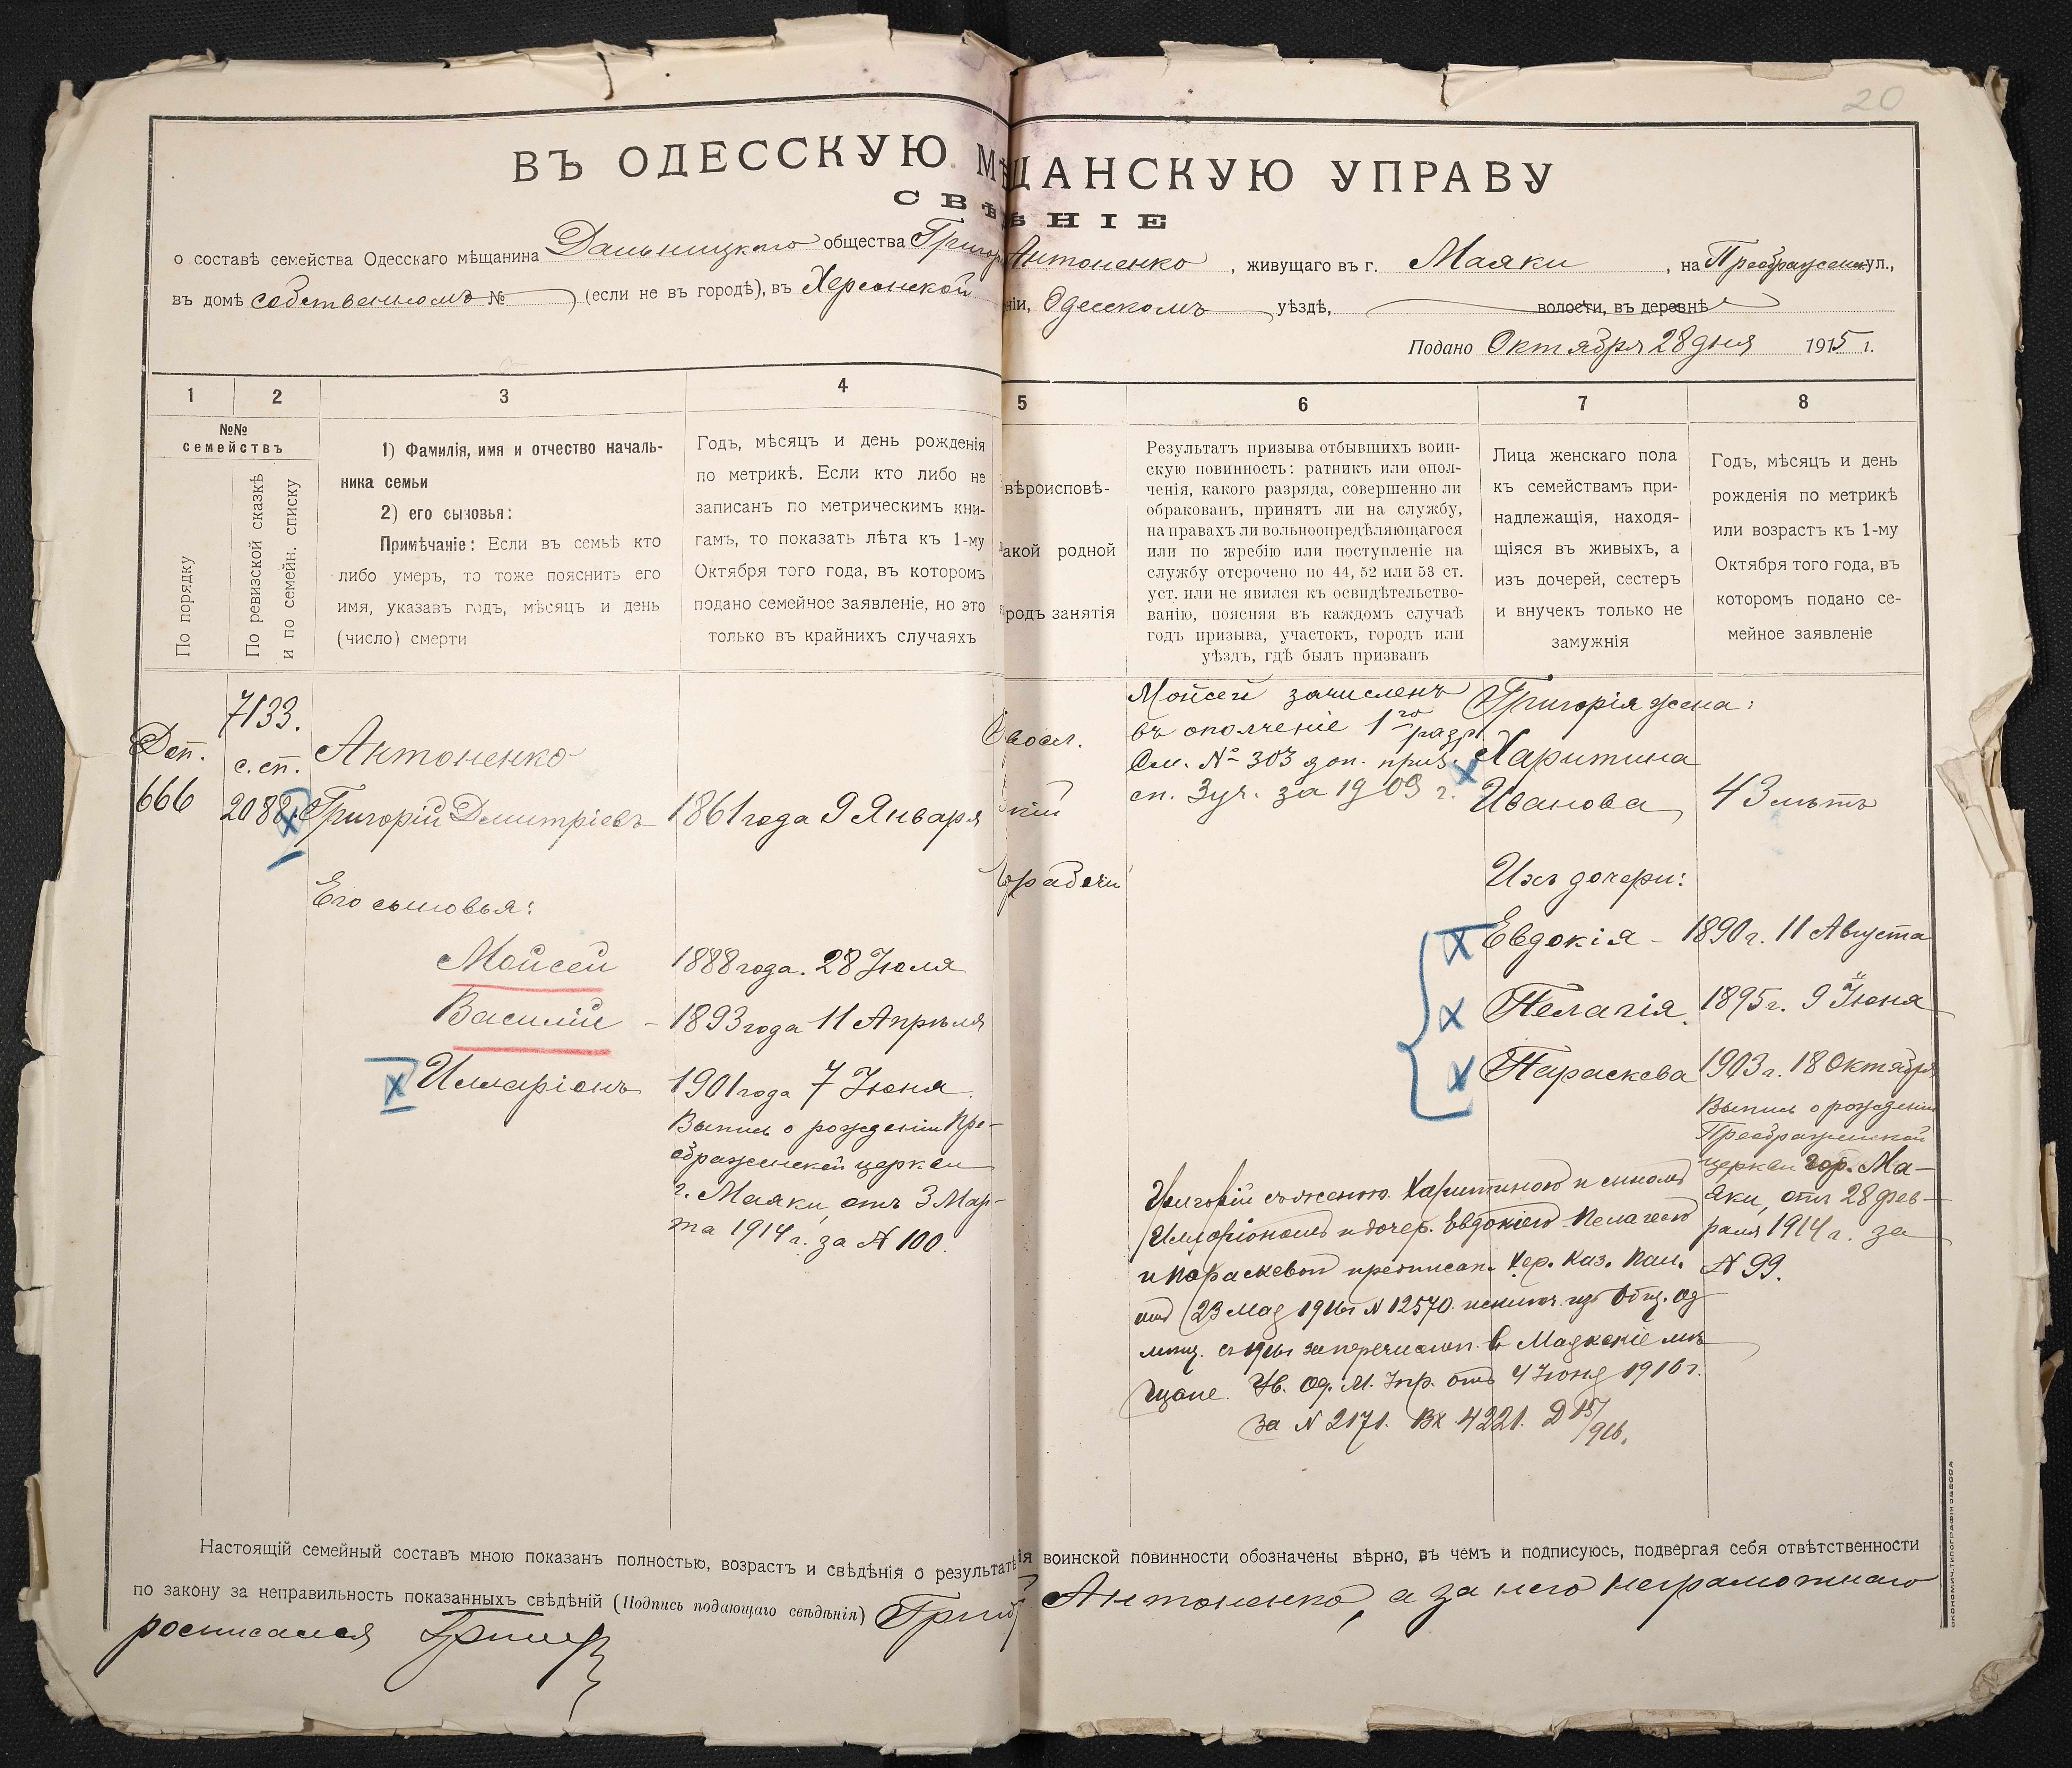 20
ВЪ ОДЕССКУЮ МѢЩАНСКУЮ УПРАВУ
СВѢ ѢНІЕ
о составѣ семейства Одесскаго мѣщанина Дальницкаго общества Григор Антоненко, живущаго въ г. Маяки, на Преображенск ул.,
въ домѣ собственномъ № (если не въ городѣ), въ Херсонской ніи, Одесскомъ уѣздѣ, волости, въ деревнѣ
Подано Октября 28 дня 1915 г.
1 2 3 4 5 6 7 8
№№ семействъ
По порядку
По ревизской сказкѣ
и по семейн. списку
1) Фамилія, имя и отчество началь-
ника семьи
2) его сыновья:
Примѣчаніе: Если въ семьѣ кто
либо умеръ, то тоже пояснить его
имя, указавъ годъ, мѣсяцъ и день
(число) смерти
Годъ, мѣсяцъ и день рожденія
по метрикѣ. Если кто либо не
записанъ по метрическимъ кни-
гамъ, то показать лѣта къ 1-му
Октября того года, въ которомъ
подано семейное заявленіе, но это
только въ крайнихъ случаяхъ
вѣроисповѣ-
акой родной
родъ занятія
Результатъ призыва отбывшихъ воин-
скую повинность: ратникъ или опол-
ченія, какого разряда, совершенно ли
обракованъ, принятъ ли на службу,
на правахъ ли вольноопредѣляющагося
или по жребію или поступленіе на
службу отсрочено по 44, 52 или 53 ст.
уст. или не явился къ освидѣтельство-
ванію, поясняя въ каждомъ случаѣ
годъ призыва, участокъ, городъ или
уѣздъ, гдѣ былъ призванъ
Лица женскаго пола
къ семействамъ при-
надлежащія, находя-
щіяся въ живыхъ, а
изъ дочерей, сестеръ
и внучекъ только не
замужнія
Годъ, мѣсяцъ и день
рожденія по метрикѣ
или возрастъ къ 1-му
Октября того года, въ
которомъ подано се-
мейное заявленіе
Доп.
666
7133.
с. сп.
2088.
Антоненко
Григорій Дмитріевъ 1861 года 9 Января
Его сыновья:
Мойсей 1888 года. 28 Іюля
Василій - 1893 года 11 Апрѣля
Илларіонъ 1901 года 7 Іюня
Выпись о рожденіи Пре-
ображенской церкви
г. Маяки, отъ 3 Мар-
та 1914 г. за № 100.
авосл.
кій
рабочій
Мойсей зачисленъ
въ ополченіе 1го разр.
См. № 303 доп. приз.
сп. 3 уч. за 1909 г.
Григорія жена:
Харитина
Иванова 43 лѣтъ
Ихъ дочери:
Евдокія - 1890 г. 11 Августа
Пелагія. 1895 г. 9 Іюня
Параскева 1903 г. 18 Октября
Выпись о рожденіи
Преображенской
церкви гор. Ма-
яки, отъ 28 фев-
раля 1914 г. за
№ 99.
Григорій съ женою Харитиною и сыномъ
Илларіономъ и дочер. Евдокіею Пелагеею
и Параскевой предписан. Хер. Каз. Пал.
отъ 23 Мая 1916 г № 12570. исключ. изъ Общ. Од
мѣщ. съ 1916 г заперечислен. въ Маякскіе мѣ
щане. Ув. Од. М. Упр. отъ 4 Іюня 1916 г.
за № 2171. Вх 4221. Д 15/916.
Настоящій семейный составъ мною показанъ полностью, возрастъ и свѣдѣнія о результатѣ ія воинской повинности обозначены вѣрно, въ чемъ и подписуюсь, подвергая себя отвѣтственности
по закону за неправильность показанныхъ свѣдѣній (Подпись подающаго свѣдѣнія) Григ Антоненко, а за него неграмотнаго
росписался
ЭКОНОМИЧ. ТИПОГРАФІЯ ОДЕССА